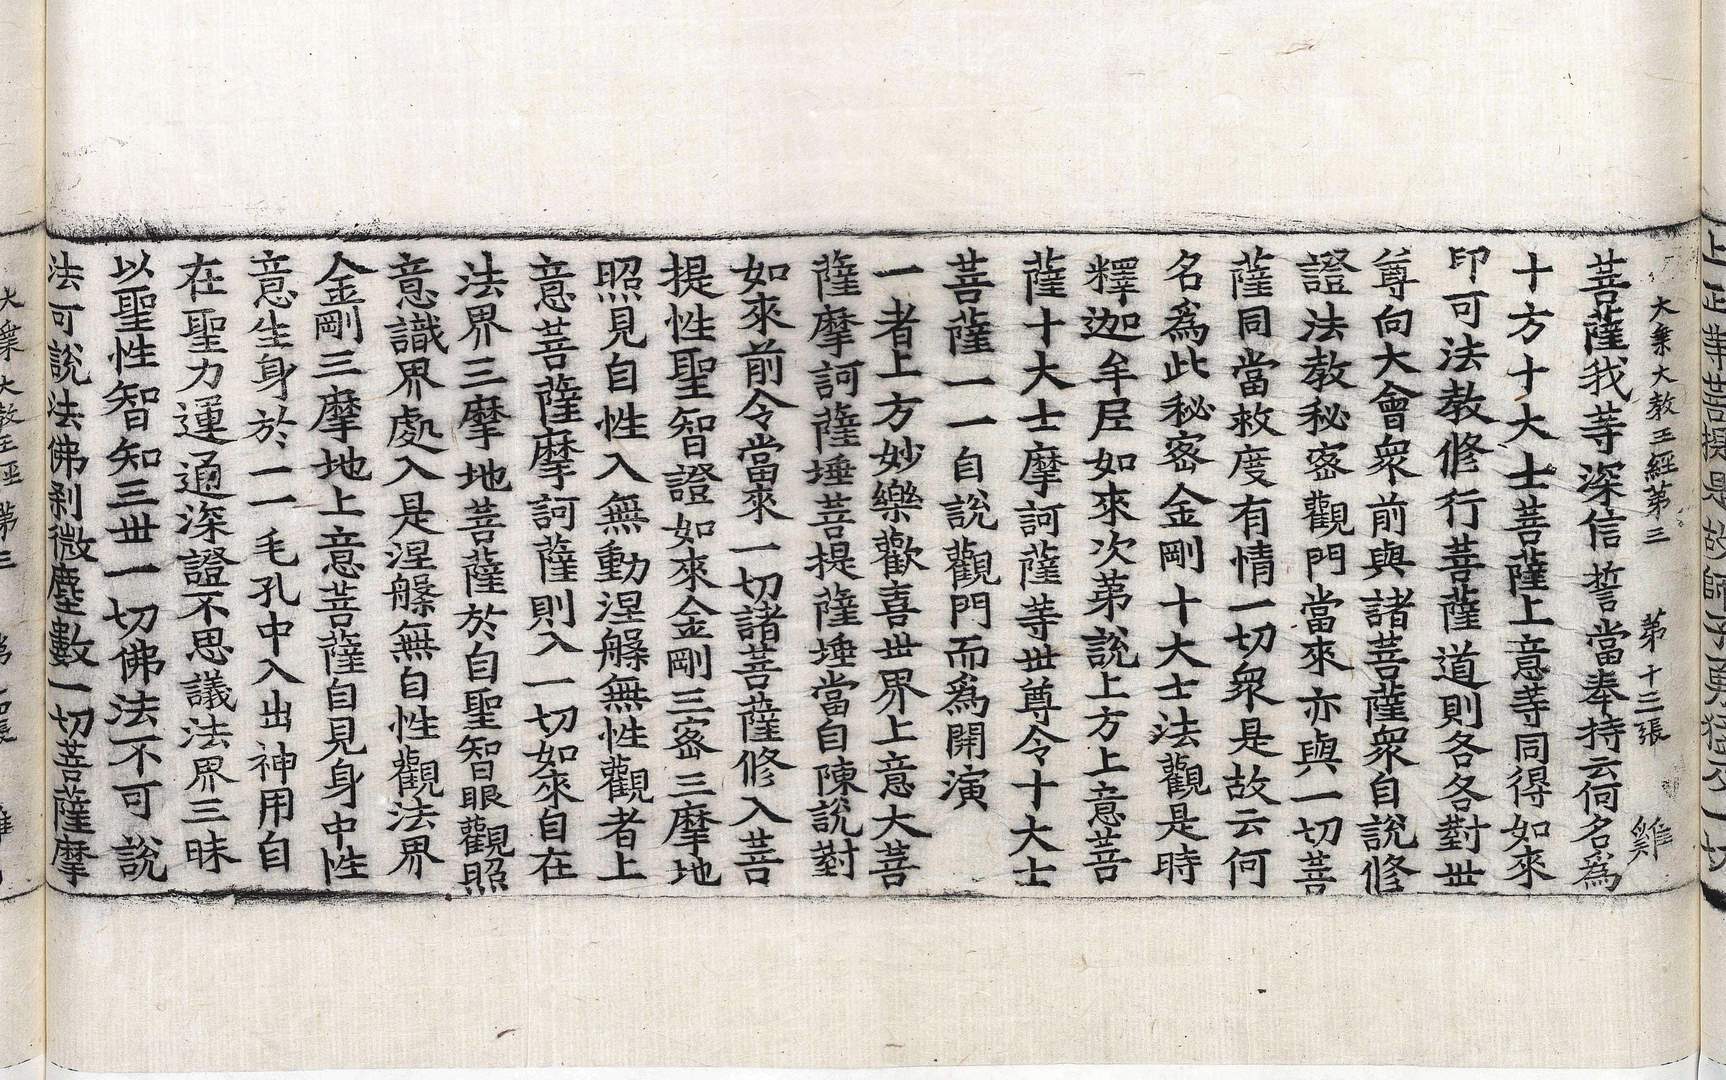 大乘大教王經第三 第十三張 雞
菩薩我等深信誓當奉持云何名爲
十方十大士菩薩上意等同得如來
印可法教修行菩薩道則各各對世
尊向大會衆前與諸菩薩衆自說修
證法教秘密觀門當來亦與一切菩
薩同當救度有情一切衆是故云何
名爲此秘密金剛十大士法觀是時
釋迦牟尼如來次第說上方上意菩
薩十大士摩訶薩等世尊令十大士
菩薩一一自說觀門而爲開演
一者上方妙樂歡喜世界上意大菩
薩摩訶薩埵菩提薩埵當自陳說對
如來前令當來一切諸菩薩修入菩
提性聖智證如來金剛三密三摩地
照見自性入無動涅槃無性觀者上
意菩薩摩訶薩則入一切如來自在
法界三摩地菩薩於自聖智眼觀照
意識界處入是涅槃無自性觀法界
金剛三摩地上意菩薩自見身中性
意生身於一一毛孔中入出神用自
在聖力運通深證不思議法界三昧
以聖性智知三世一切佛法不可說
法可說法佛剎微塵數一切菩薩摩
大乘大教王經第三